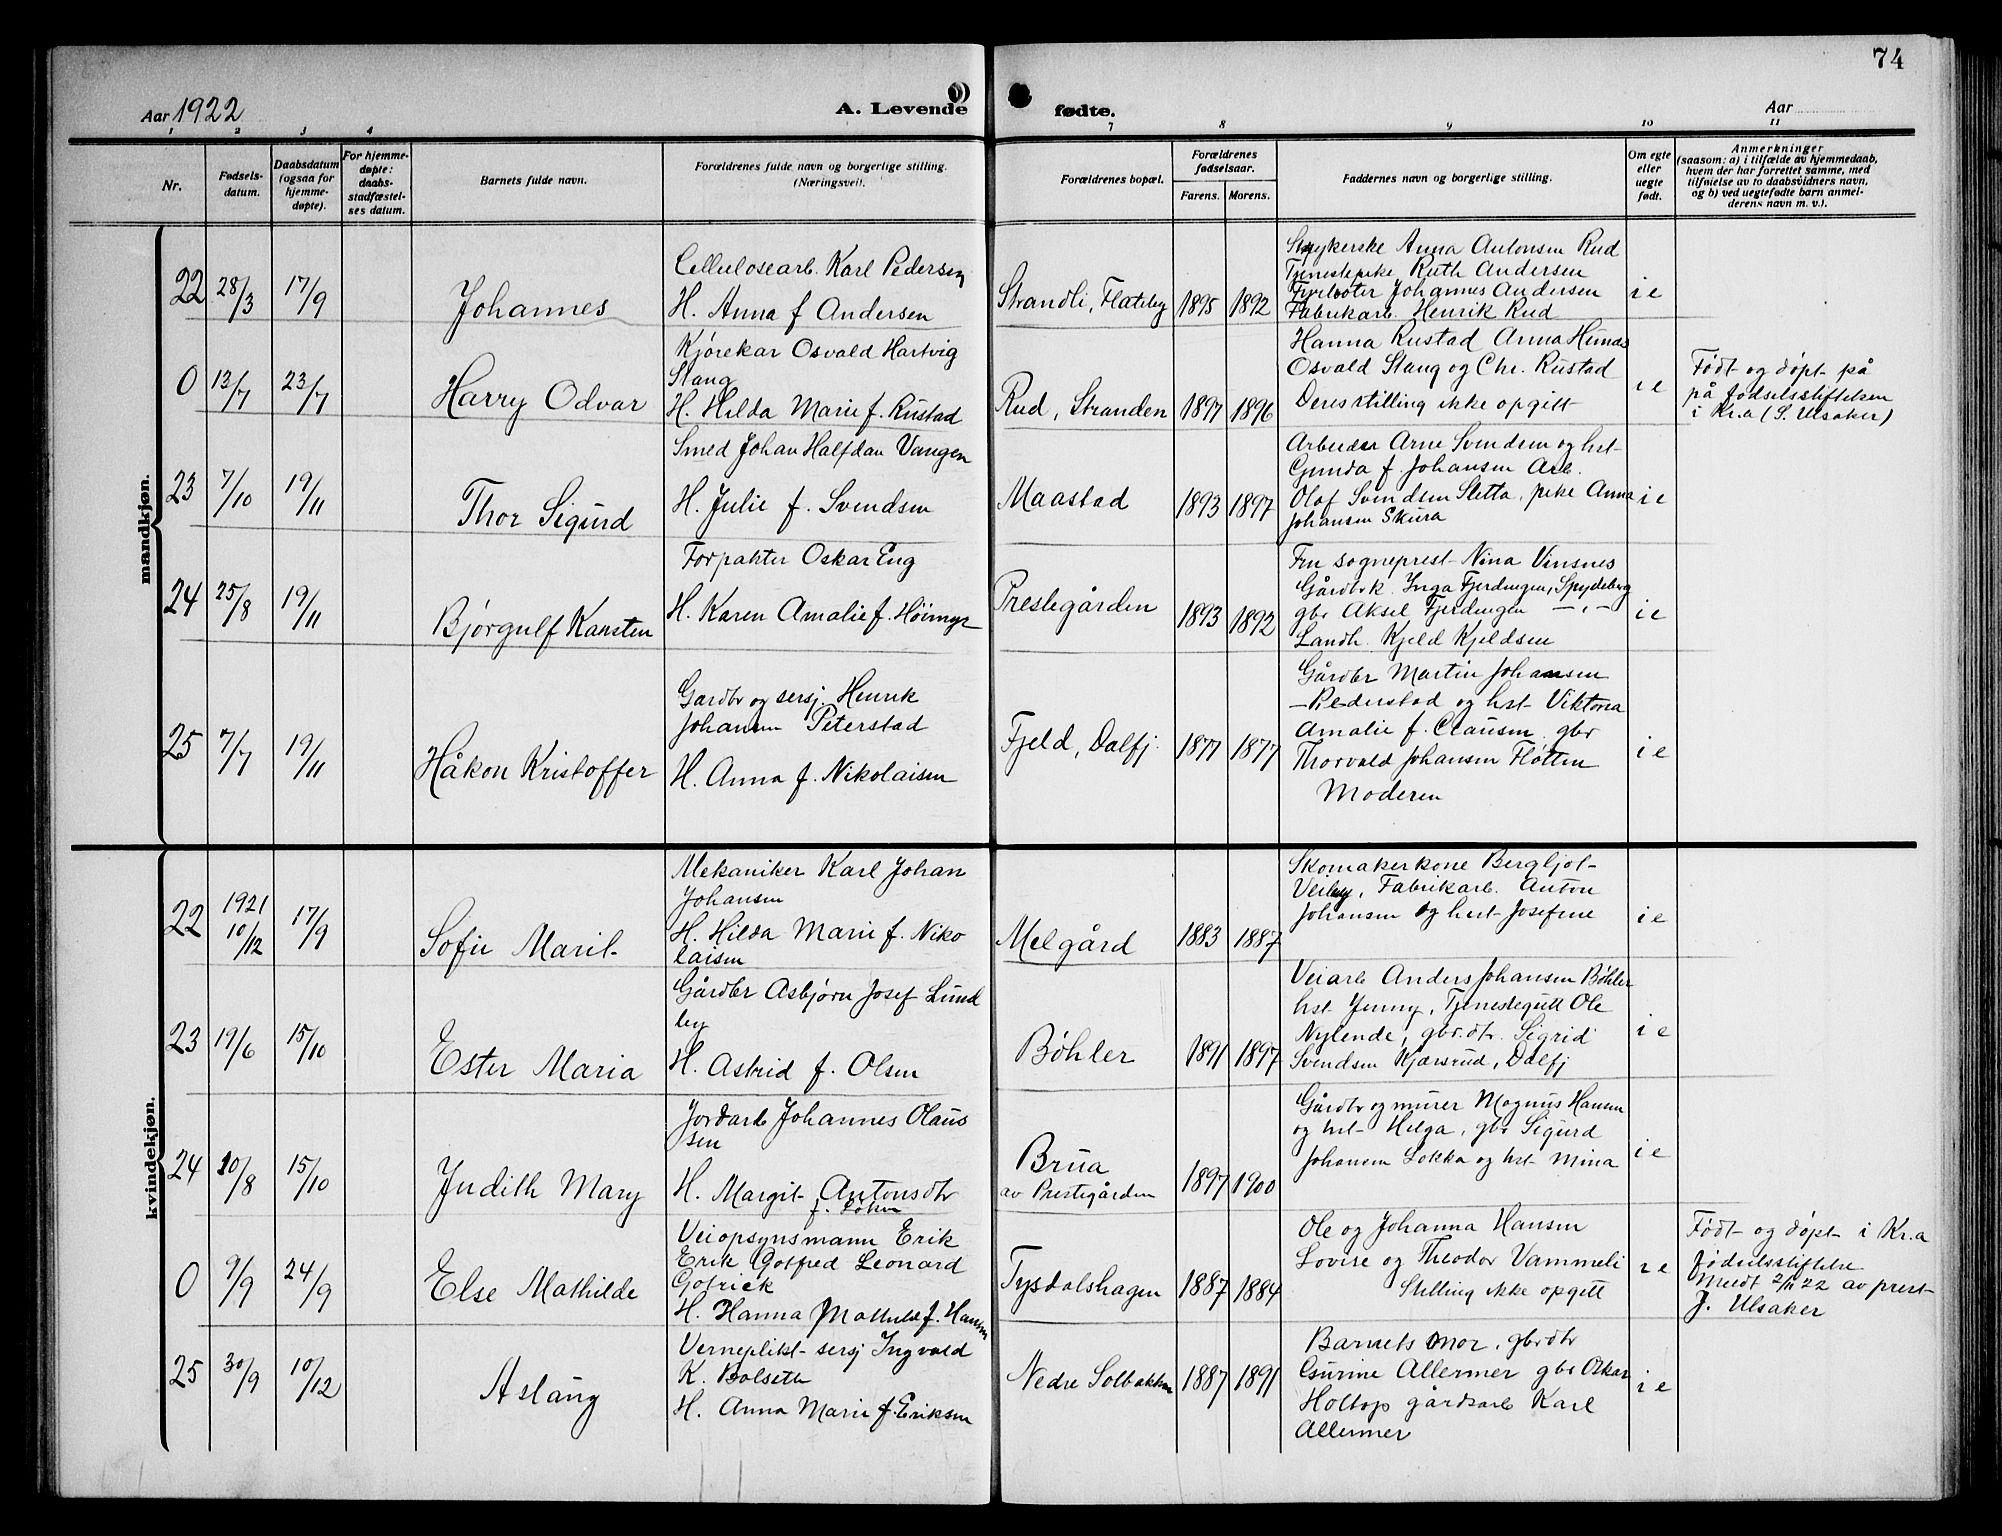 74
Aar 1922
A. Levende
fødte.
Aar
1 2 3 4 7 8 9 10 11
Nr.
Fødsels-
datum.
Daabsdatum
(ogsaa for
hjemme-
døpte).
For hjemme-
døpte:
daabs-
stadfæstel-
ses datum.
Barnets fulde navn.
Forældrenes fulde navn og borgerlige stilling.
(Næringsvei).
Forældrenes bopæl.
Forældrenes
fødselsaar.
Farens. Morens.
Faddernes navn og borgerlige stilling.
Om egte
eller
uegte
født.
Anmerkninger
(saasom: a) i tilfælde av hjemmedaab,
hvem der har forrettet samme, med
tilføielse av to daabsvidners navn,
og b) ved uegtefødte barn anmel-
derens navn m. v.).
mandkjøn.
22 28/3 17/9
Johannes
Cellulosearb. Karl Pedersen
H. Anna f Andersen
Strandli, Flateby 1895 1892
Strykerske Anna Antonsen Rud
Tjenestepike Ruth Andersen
Fyrbøter Johannes Andersen
Fabrikarb. Henrik Rud
i e
0 13/7 23/7
Harry Odvar
Kjørekar Osvald Hartvig
Stang
H. Hilda Marie f. Rustad
Rud, Stranden 1897 1896
Hanna Rustad Anna
Osvald Stang og Chr. Rustad
Deres stilling ikke opgitt
i e
Født og døpt på
på fødselsstiftelsen
i Kr.a (S. Ulsaker)
23 7/10 19/11
Thor Sigurd
Smed Johan Halfdan Vangen
H. Julie f. Svendsen
Maastad 1893 1897
Arbeider Arne Svendsen og hst
Gunda f. Johansen Arb.
Olaf Svendsen Sletta, pike Anna
Johansen Skura
i e
24 25/8 19/11
Bjørgulf Karsten
Forpakter Oskar Eng
H. Karen Amalie f. Höimyr
Prestegården 1893 1892
Fru sogneprest Nina Vinsnes
Gårdbrk. Inga Fjerdingen, Spydeberg
gbr Aksel Fjerdingen — „ —
Landh. Kjeld Kjeldsen
i e
25 7/7 19/11
Håkon Kristoffer
Gardbr og sersj. Henrik
Johansen Peterstad
H. Anna f. Nikolaisen
Fjeld, Dalfj. 1877 1877
Gårdbr Martin Johansen
Pederstad og hst Viktoria
Amalie f. Clausen gbr
Thorvald Johansen Fløtten
Moderen
i e
kvindekjøn.
22 1921 10/12 17/9
Sofie Marit
Mekaniker Karl Johan
Johansen
H. Hilda Marie f. Niko
laisen
Melgård 1883 1887
Skomakerkone Bergljot
Veiby, Fabrikarb. Anton
Johansen og hust Josefine
i e
23 19/6 15/10
Ester Maria
Gårdbr Asbjørn Josef Lund
by
H. Astrid f. Olsen
Bøhler 1891 1897
Veiarb Anders Johansen Bøhler
hst Jenny, Tjenestegutt Ole
Nylende, gbr.dtr. Sigrid
Svendsen Kjærsrud, Dalfj
i e
24 10/8 15/10
Judith Mary
Jordarb Johannes Olaus
sen
H. Margit Antonsdtr
Brua
av Prestegården 1897 1900
Gårdbr og murer Magnus Hansen
og hst Helga, gbr Sigurd
Johansen Løkka og hst Mina
i e
0 9/9 24/9
Else Mathilde
Veiopsynsmann Erik
Erik Gotfred Leonard
Gotrick
H. Hanna Mathilde f. Hansen
Tysdalshagen 1887 1884
Ole og Johanna Hansen
Lovise og Theodor Vammeli
Stilling ikke opgitt
i e
Født og døpt i Kr.a
fødselsstiftelse
Meldt 2/11 22 av prest
J. Ulsaker
25 30/9 10/12
Aslaug
Vernepligt sersj Ingvald
K. Bolseth
H. Anna Marie f. Eriksen
Nedre Solbakken 1887 1891
Barnets mor, gbrdtr
Gurine Allermer gbr Oskar
Holtop gårdsarb Karl
Allermer
i e